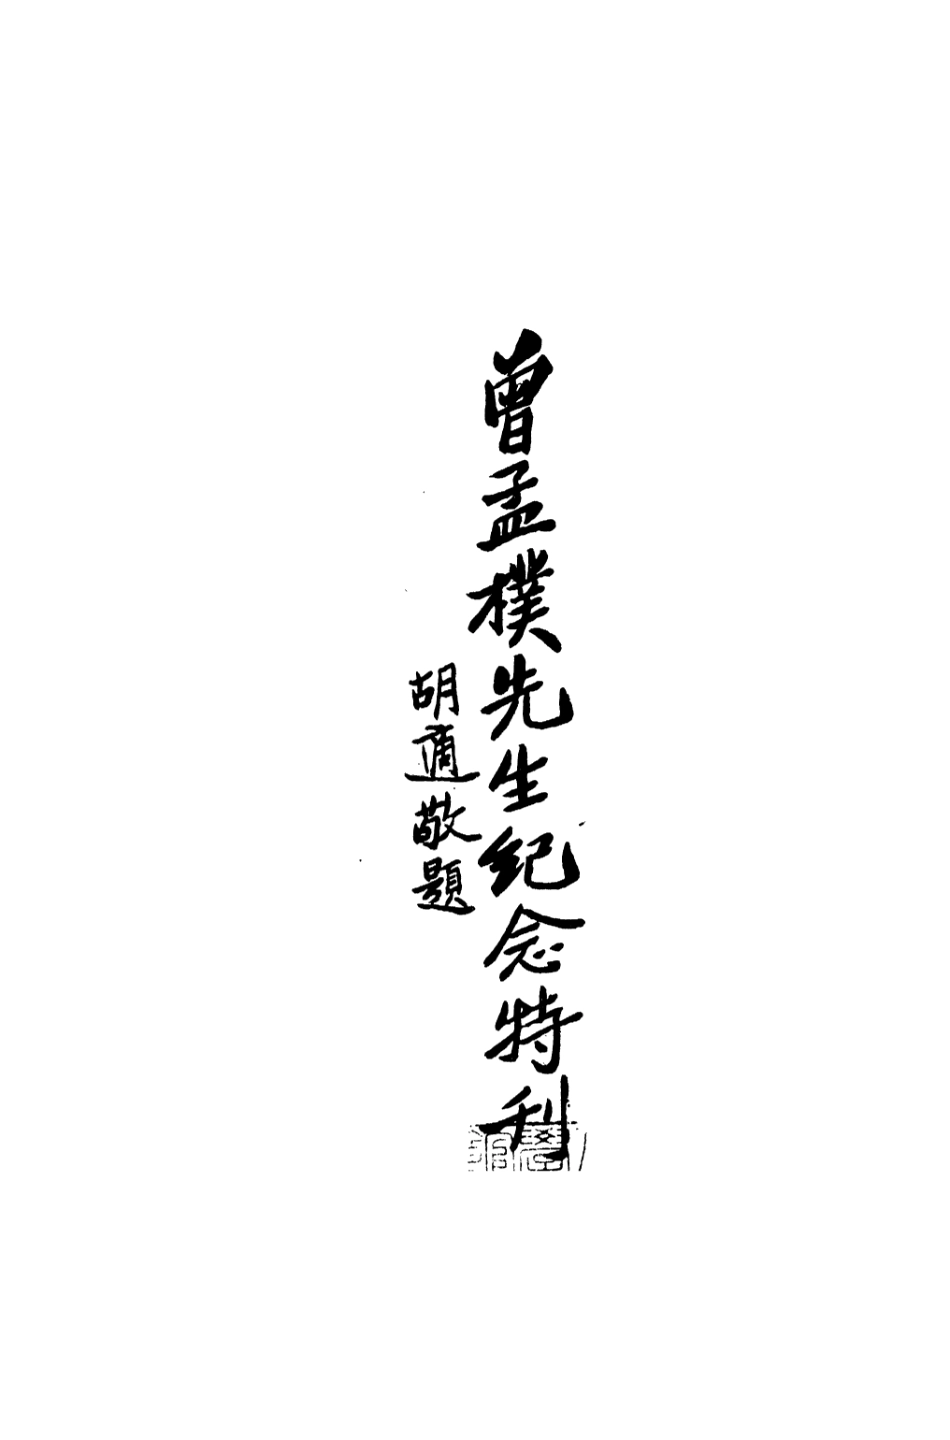 曾孟樸先生紀念特刊
胡適敬題